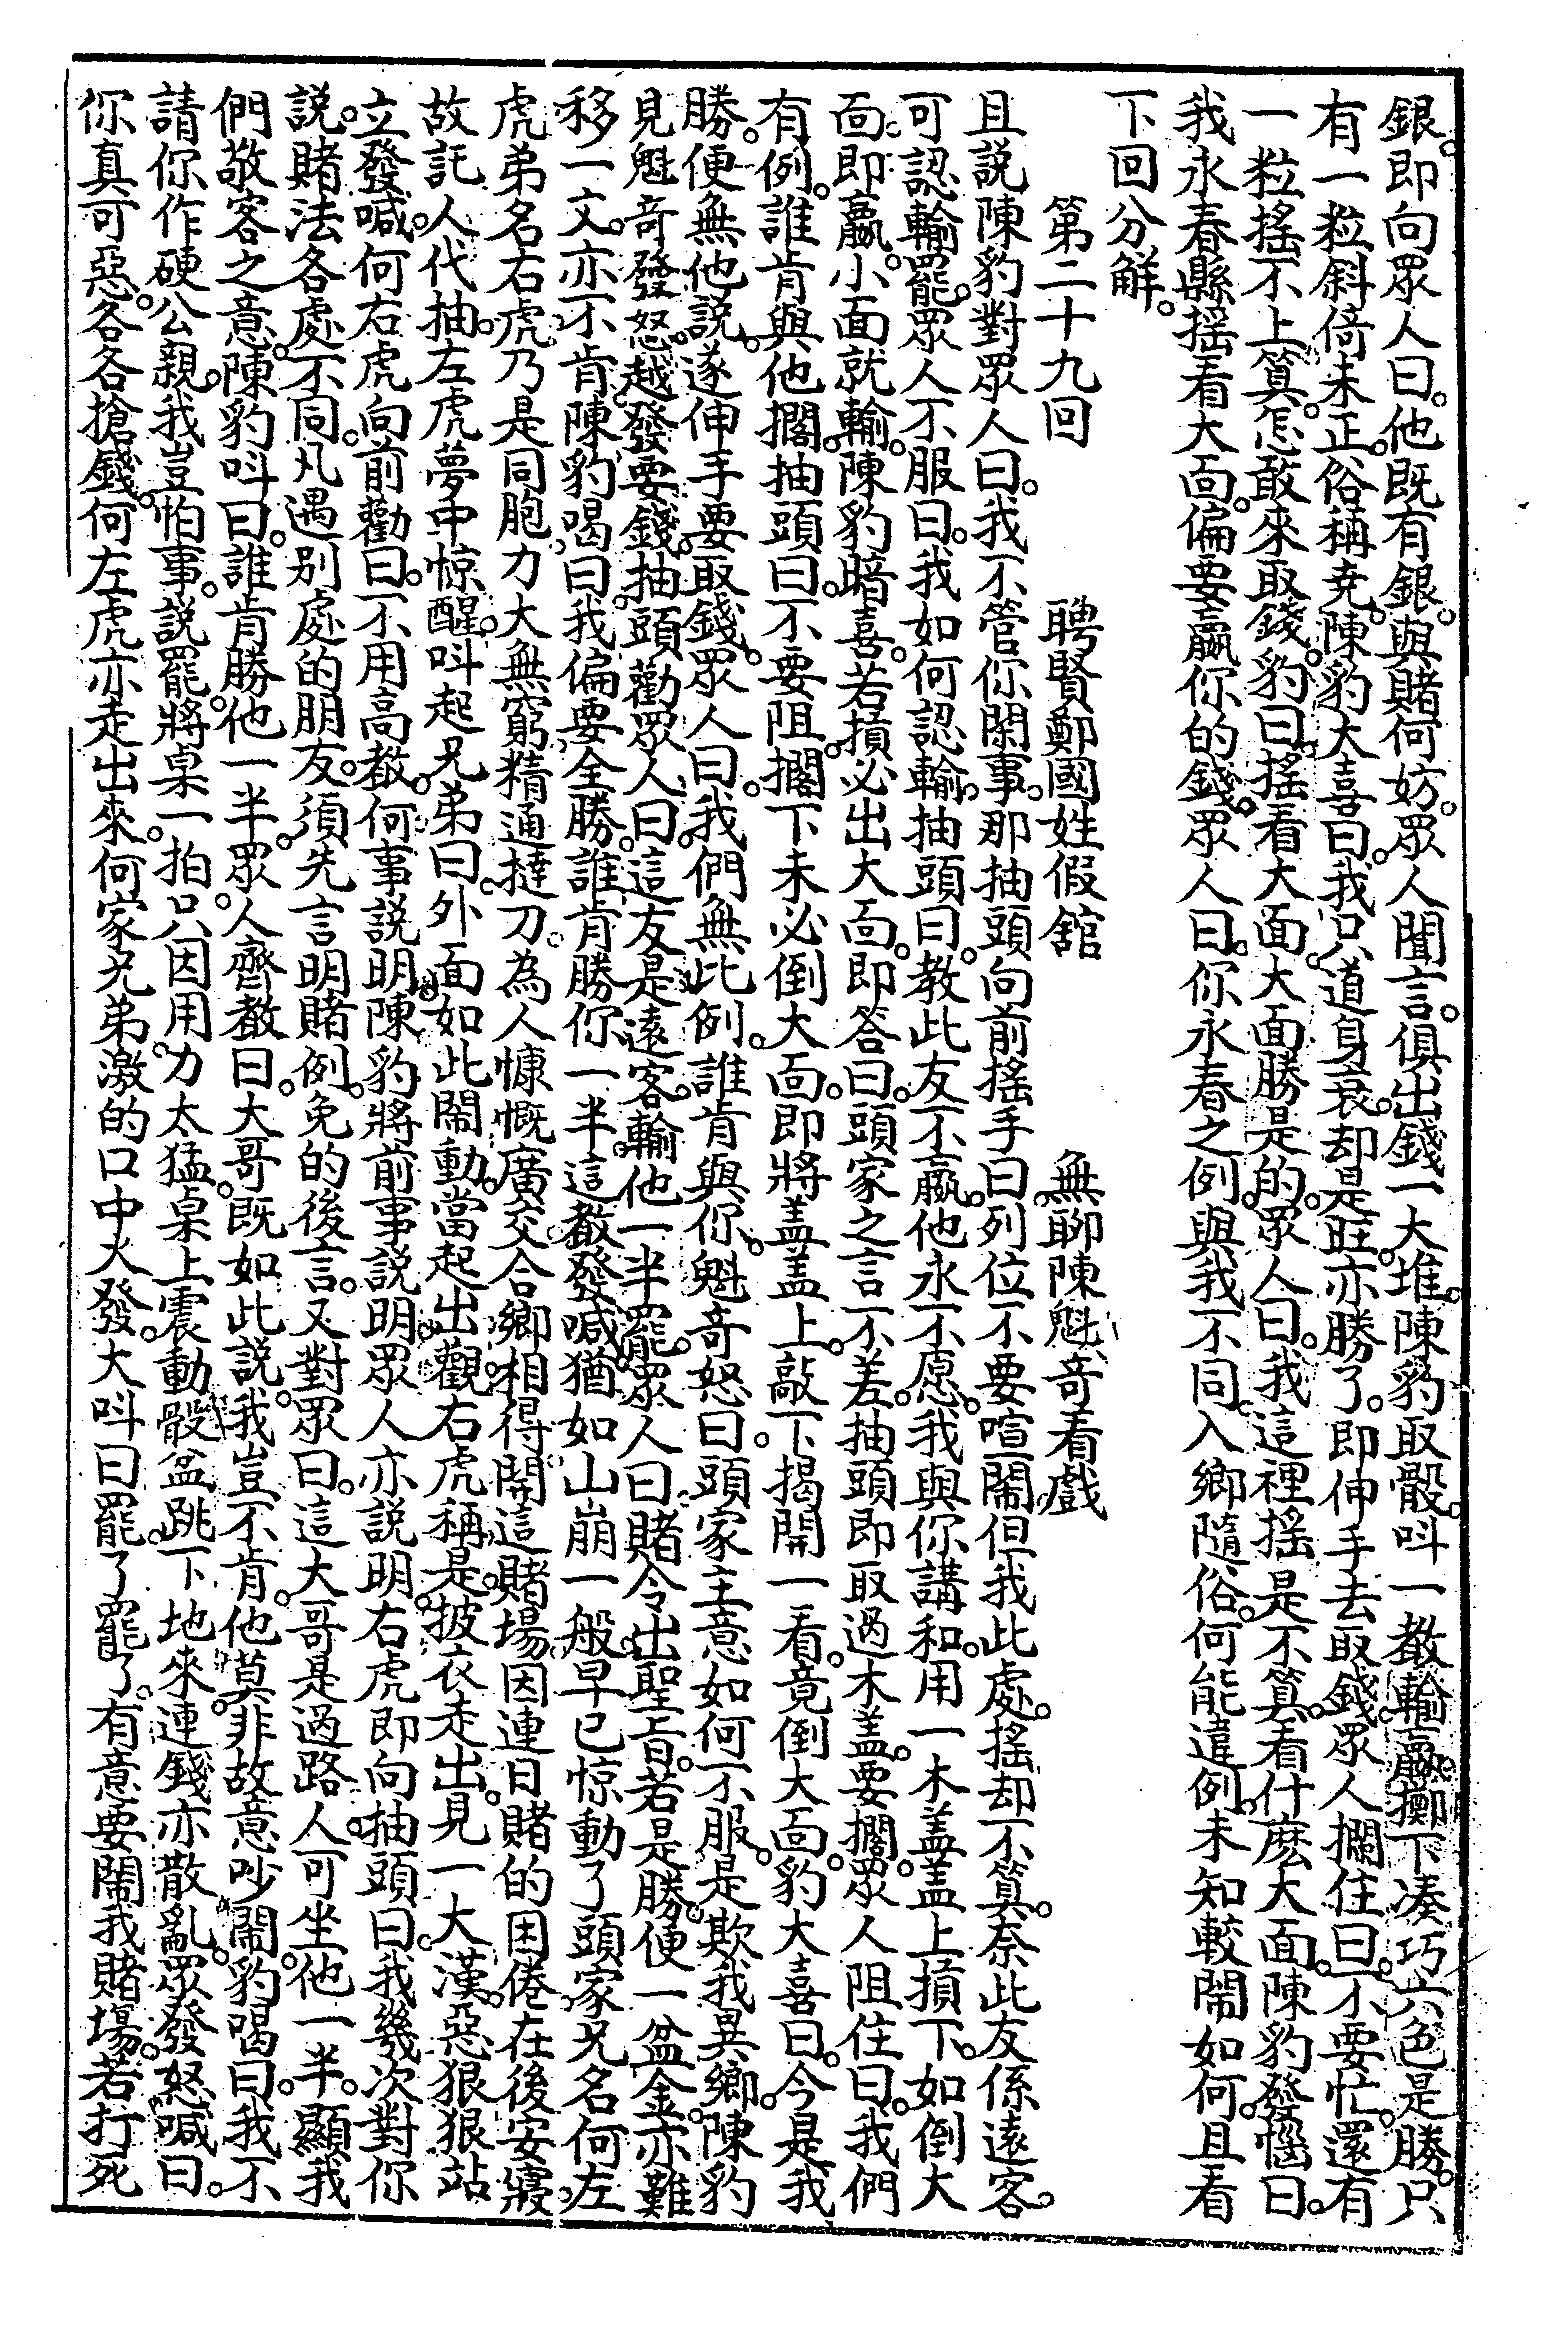 銀。即向眾人曰。他既有銀。與賭何妨。眾人聞言。俱出錢一大堆。陳豹取骰。呌一聲輸贏。擲下凑巧六色是勝。只
有一粒斜倚未正。俗稱尭。陳豹大喜曰。我只道身衰。却是旺。亦勝了。即伸手去取錢。眾人攔住曰。不要忙。還有
一粒搖不上筭。怎敢來取錢。豹曰。搖看大面。大面勝是的。眾人曰。我這裡搖是不筭。看什麽大面。陳豹發惱曰。
我永春縣搖看大靣。偏要贏你的錢。眾人曰。你永春之例。與我不同。入鄉隨俗。何能違例。未知較鬧如何。且看
下回分解。
第二十九回 聘賢鄭國姓假舘 無聊陳魁竒看戲
且説陳豹對眾人曰。我不管你閑事。那抽頭向前搖手曰。列位不要喧鬧。但我此處。搖却不筭。奈此友係遠客。
可認輸罷。眾人不服曰。我如何認輸。抽頭曰。教此友不贏。他永不愿。我與你講和。用一木盖盖上摃下。如倒大
靣即贏。小面就輸。陳豹暗喜。若摃必出大靣。即答曰。頭家之言不差。抽頭即取過木盖。要擱。眾人阻住曰。我們
有例。誰肯與他擱。抽頭曰。不要阻。擱下未必倒大靣。即將盖盖上。敲下揭開一看。竟倒大靣。豹大喜曰。今是我
勝。便無他説。遂伸手要取錢。眾人曰。我們無此例。誰肯與你。魁竒怒曰。頭家主意如何不服。是欺我異鄉。陳豹
見魁竒發怒。越發要錢。抽頭勸眾人曰。這友是遠客。輸他一半罷。眾人曰。賭令出聖旨。若是勝。便一盆金。亦難
移一文。亦不肯。陳豹喝曰。我偏要全勝。誰肯勝你一半。這聲發喊。猶如山崩一般。早已惊動了頭家兄名何左
虎弟名右虎。乃是同胞。力大無窮。精通撻刀。為人慷慨。廣交合鄉。相得開這賭場。因連日賭的困倦。在後安寢。
故託人代抽。左虎夢中惊醒。呌起兄弟曰。外面如此鬧動。當起出觀。右虎稱是。披衣走出。見一大漢。惡狠狠站
立發喊。何右虎向前勸曰。不用高聲。何事説明。陳豹將前事説明。眾人亦説明。右虎即向抽頭曰。我幾次對你
説。賭法各處不同。凡遇别處的朋友。須先言明賭例。免的後言。又對眾曰。這大哥是過路人。可坐他一半。顯我
們敬客之意。陳豹呌曰。誰肯勝他一半。眾人齊聲曰。大哥既如此説。我豈不肯。他莫非故意吵鬧。豹喝曰。我不
請你作硬公親。我豈怕事。説罷。將桌一拍。只因用力太猛。桌上震動。骰盆跳下地來。連錢亦散亂。眾發怒喊曰。
你真可惡。各各搶錢。何左虎亦走出來。何家兄弟激的口中火發。大呌曰。罷了罷了。有意要鬧我賭場。若打死